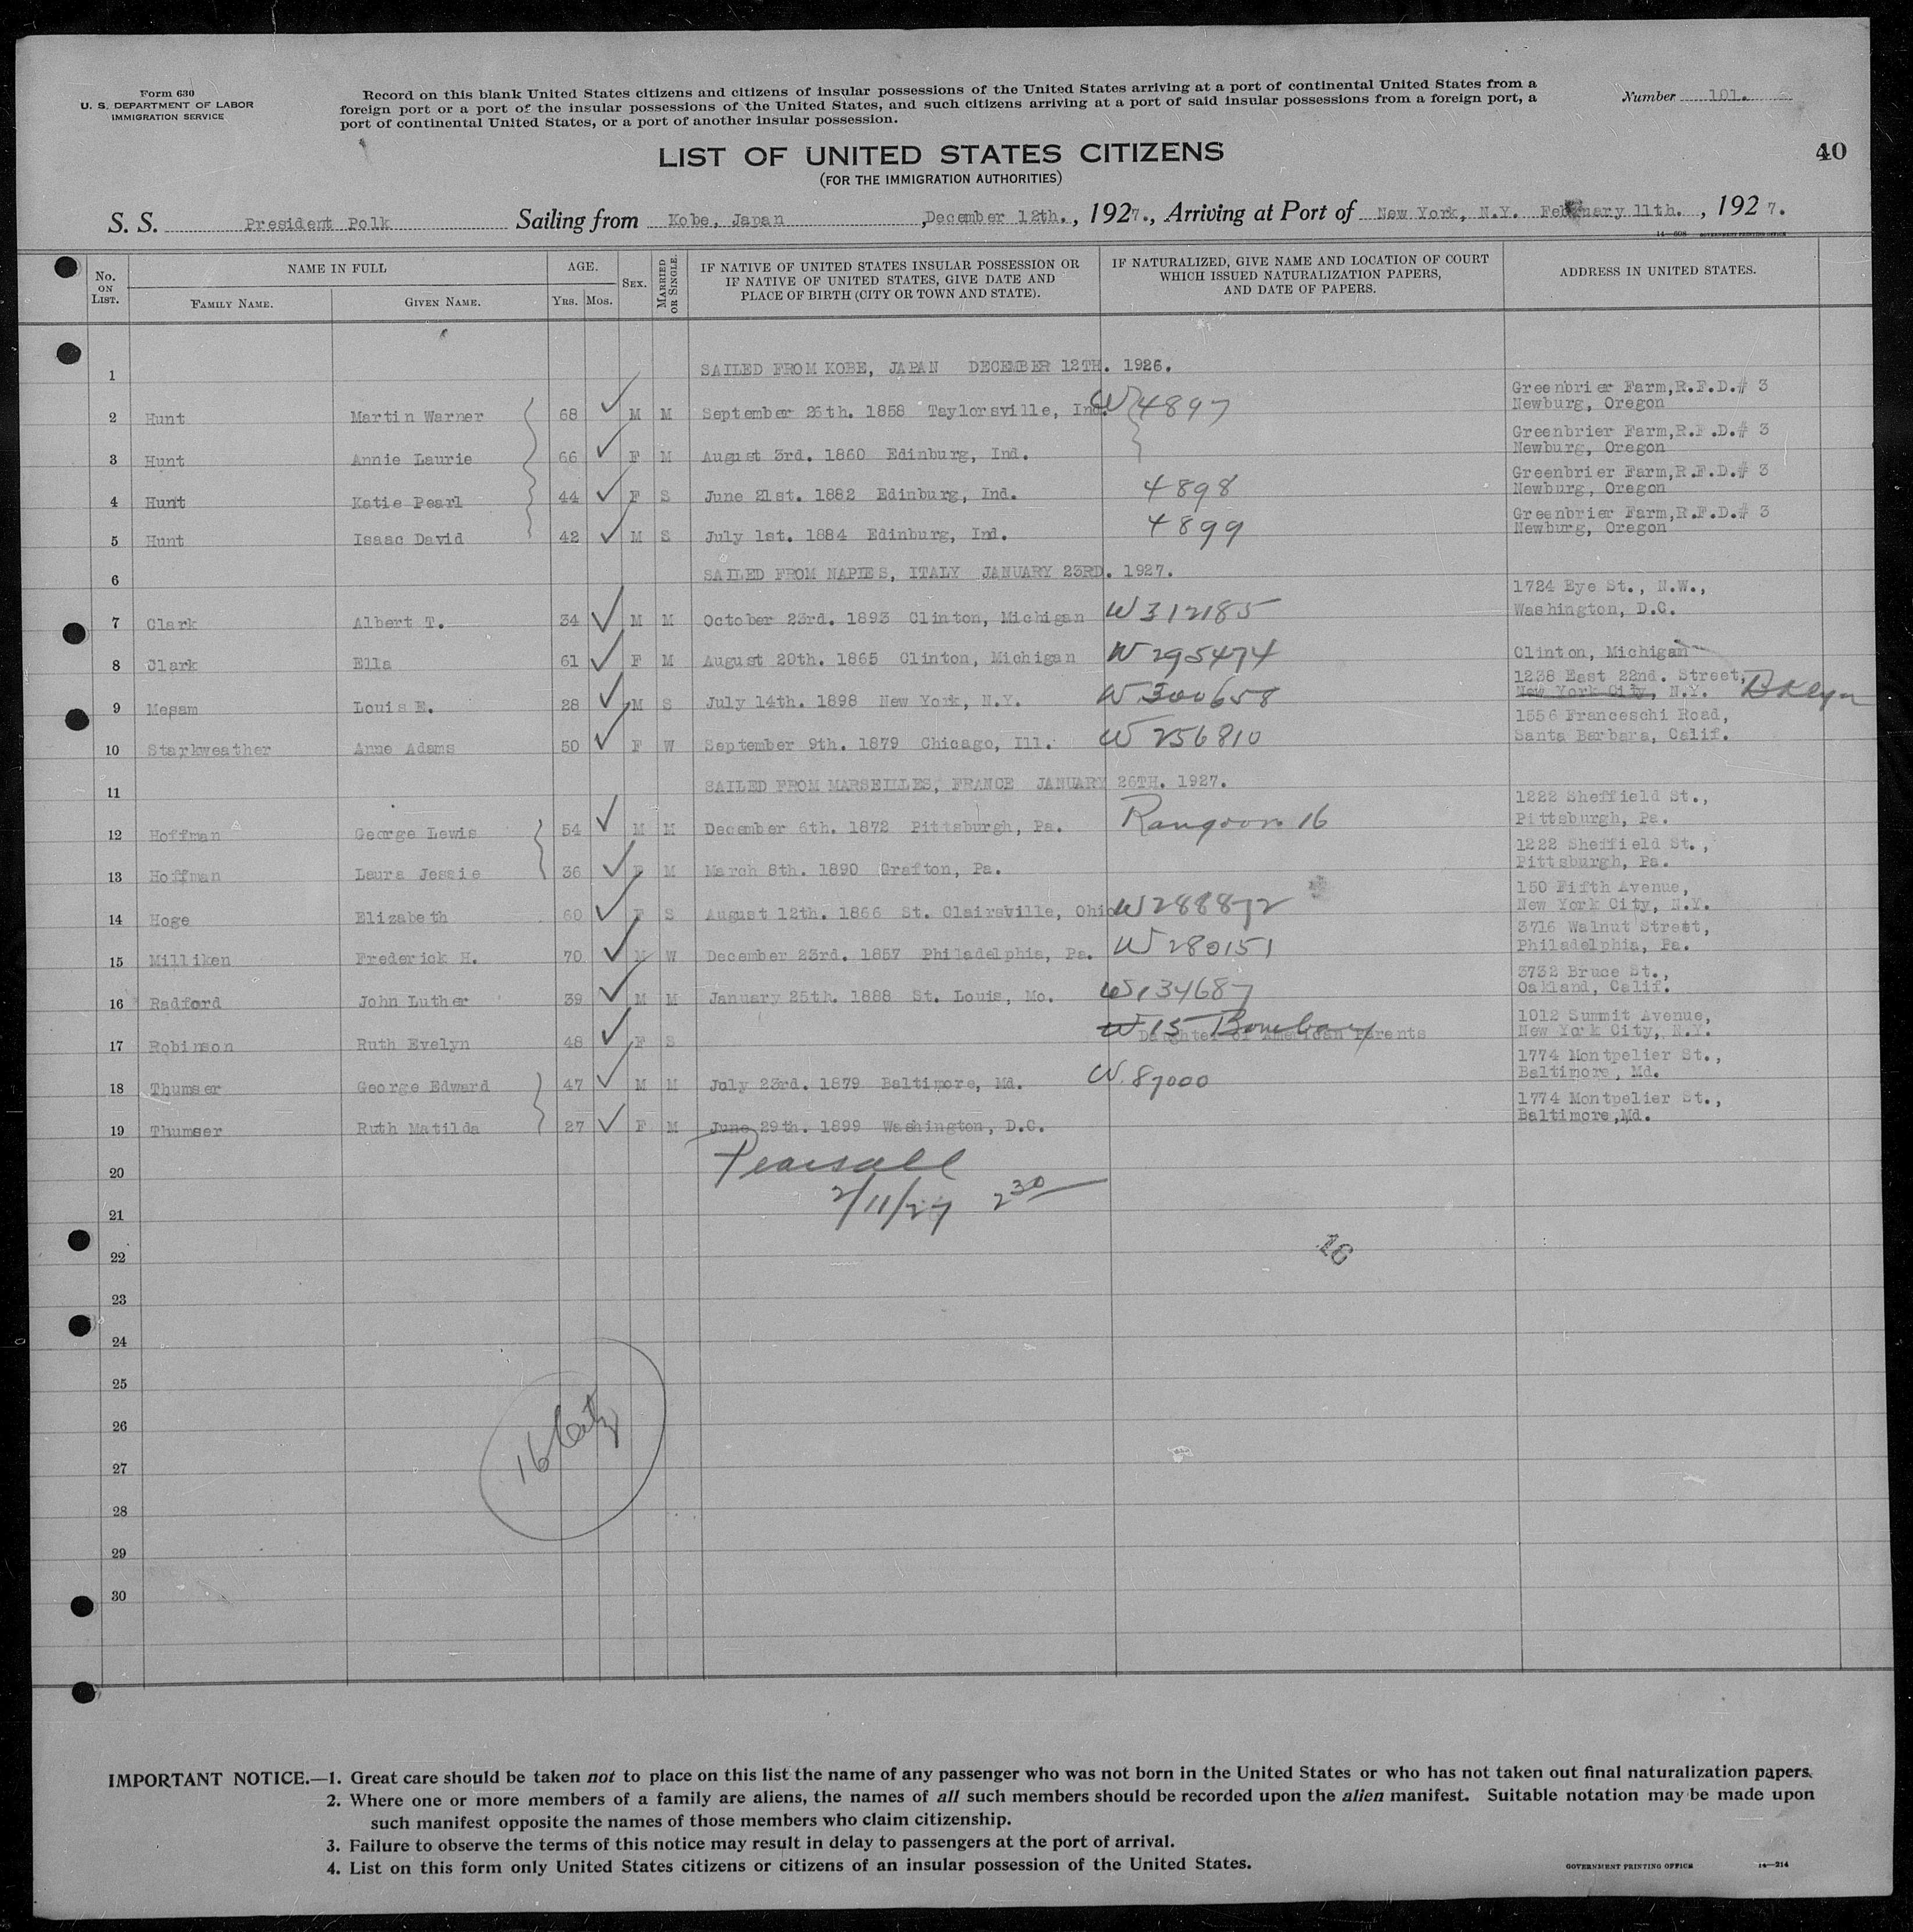 Form 630
U. S. DEPARTMENT OF LABOR
IMMIGRATION SERVICE
Record on this blank United States citizens and citizens of insular possessions of the United States arriving at a port of continental United States from a
foreign port or a port of the insular possessions of the United States, and such citizens arriving at a port of said insular possessions from a foreign port, a
port of continental United States, or a port of another insular possession.
Number 101.
40
LIST OF UNITED STATES CITIZENS
(FOR THE IMMIGRATION AUTHORITIES)
S. S. President Polk Sailing from Kobe, Japan , December 12th., 1927., Arriving at Port of New York, N.Y. February 11th. , 1927.
14—608 GOVERNMENT PRINTING OFFICE
No. ON LIST. NAME IN FULL FAMILY NAME. GIVEN NAME. AGE. YRS. MOS. SEX. MARRIED OR SINGLE. IF NATIVE OF UNITED STATES INSULAR POSSESSION OR IF NATIVE OF UNITED STATES, GIVE DATE AND PLACE OF BIRTH (CITY OR TOWN AND STATE). IF NATURALIZED, GIVE NAME AND LOCATION OF COURT WHICH ISSUED NATURALIZATION PAPERS, AND DATE OF PAPERS. ADDRESS IN UNITED STATES.
1 SAILED FROM KOBE, JAPAN DECEMBER 12TH. 1926.
2 Hunt Martin Warner 68 M M September 26th. 1858 Taylorsville, Ind. W 4897 Greenbrier Farm,R.F.D.# 3 Newburg, Oregon
3 Hunt Annie Laurie 66 F M August 3rd. 1860 Edinburg, Ind. Greenbrier Farm,R.F.D.# 3 Newburg, Oregon
4 Hunt Katie Pearl 44 F S June 21st. 1882 Edinburg, Ind. 4898 Greenbrier Farm,R.F.D.# 3 Newburg, Oregon
5 Hunt Isaac David 42 M S July 1st. 1884 Edinburg, Ind. 4899 Greenbrier Farm,R.F.D.# 3 Newburg, Oregon
6 SAILED FROM NAPLES, ITALY JANUARY 23RD. 1927.
7 Clark Albert T. 34 M M October 23rd. 1893 Clinton, Michigan W 312185 1724 Eye St., N.W., Washington, D.C.
8 Clark Ella 61 F M August 20th. 1865 Clinton, Michigan W 295474 Clinton, Michigan
9 Mesam Louis E. 28 M S July 14th. 1898 New York, N.Y. W 300658 1238 East 22nd. Street, New York City, N.Y. BKlyn
10 Starkweather Anne Adams 50 F W September 9th. 1879 Chicago, Ill. W 256810 1556 Franceschi Road, Santa Barbara, Calif.
11 SAILED FROM MARSEILLES, FRANCE JANUARY 26TH. 1927.
12 Hoffman George Lewis 54 M M December 6th. 1872 Pittsburgh, Pa. Rangoon 16 1222 Sheffield St., Pittsburgh, Pa.
13 Hoffman Laura Jessie 36 F M March 8th. 1890 Grafton, Pa. 1222 Sheffield St., Pittsburgh, Pa.
14 Hoge Elizabeth 60 F S August 12th. 1866 St. Clairsville, Ohio W 288872 150 Fifth Avenue, New York City, N.Y.
15 Milliken Frederick H. 70 M W December 23rd. 1857 Philadelphia, Pa. W 280151 3716 Walnut Street, Philadelphia, Pa.
16 Radford John Luther 39 M M January 25th. 1888 St. Louis, Mo. W 134687 3732 Bruce St., Oakland, Calif.
17 Robinson Ruth Evelyn 48 F S W 15 Bombay Daughter of American Parents 1012 Summit Avenue, New York City, N.Y.
18 Thumser George Edward 47 M M July 23rd. 1879 Baltimore, Md. W. 87000 1774 Montpelier St., Baltimore, Md.
19 Thumser Ruth Matilda 27 F M June 29th. 1899 Washington, D.C. 1774 Montpelier St., Baltimore,Md.
20 Pearsall
21 2/11/27 2 30
22 16
23
24
25
26
27 16 Citz
28
29
30
IMPORTANT NOTICE.—1. Great care should be taken not to place on this list the name of any passenger who was not born in the United States or who has not taken out final naturalization papers.
2. Where one or more members of a family are aliens, the names of all such members should be recorded upon the alien manifest. Suitable notation may be made upon
such manifest opposite the names of those members who claim citizenship.
3. Failure to observe the terms of this notice may result in delay to passengers at the port of arrival.
4. List on this form only United States citizens or citizens of an insular possession of the United States.
GOVERNMENT PRINTING OFFICE 14—214